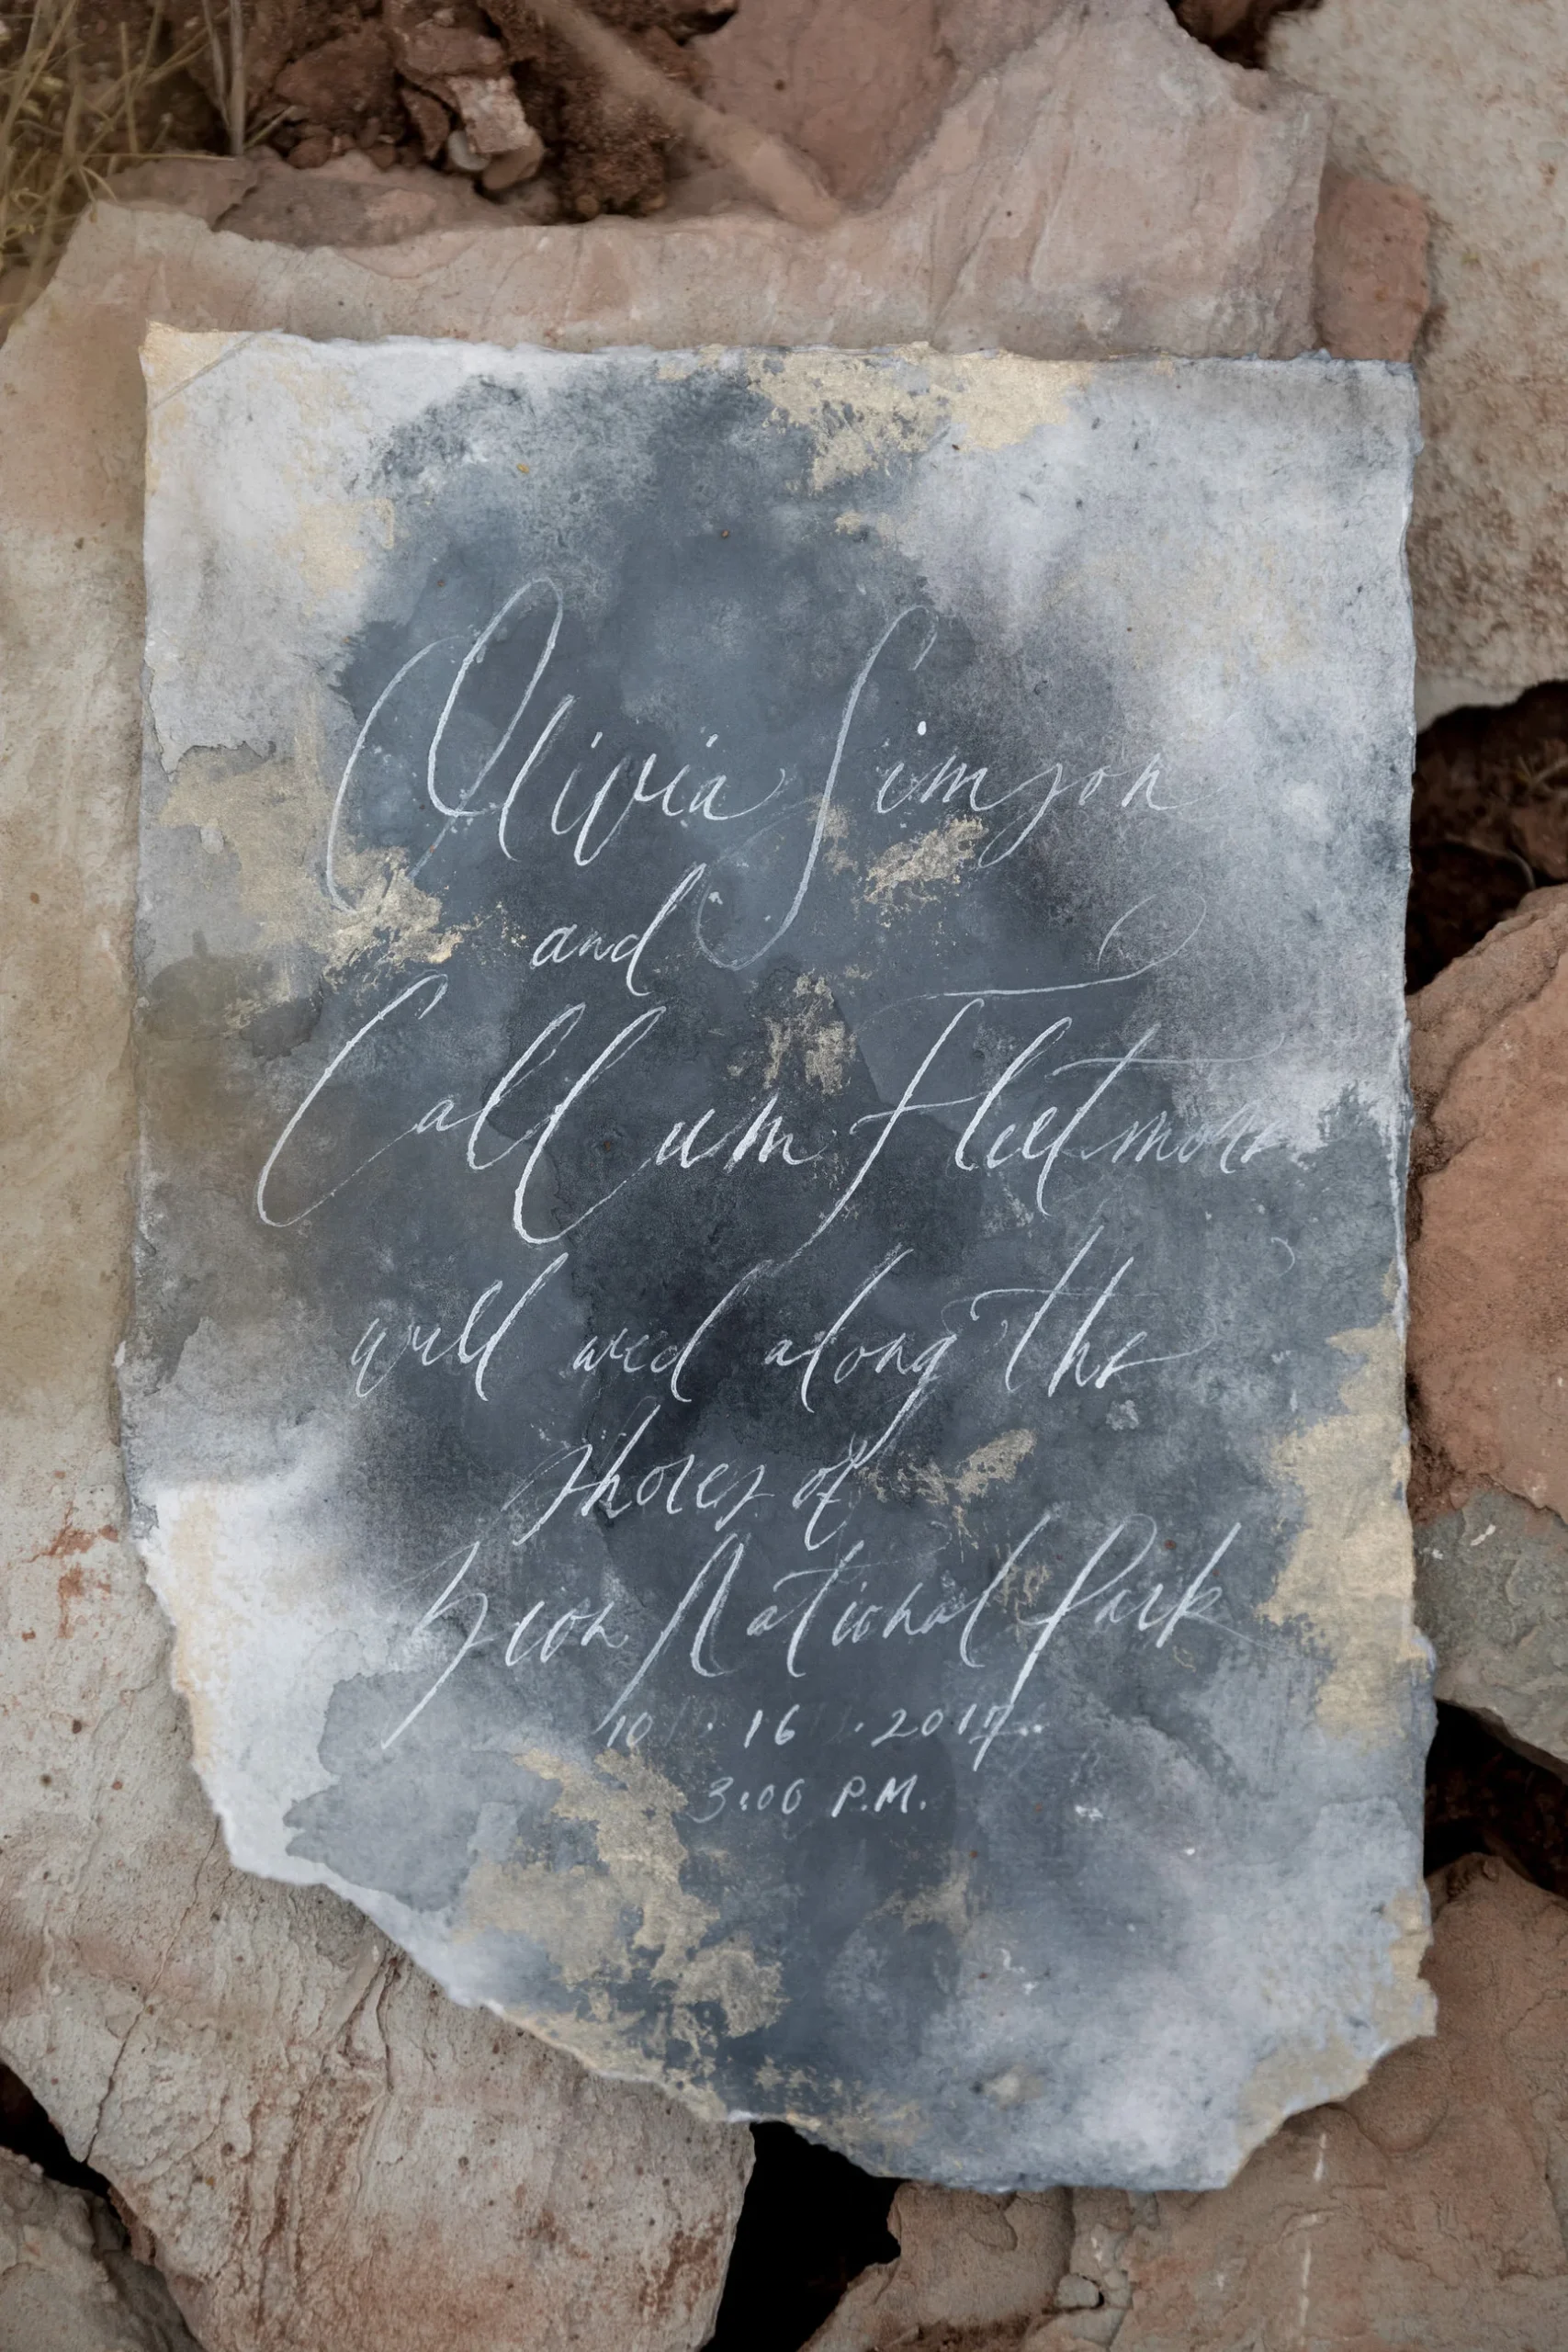 Olivia Simson
and
Callum Fleetmore
will wed along the
shores of
Zion National Park
10 . 16 . 2017.
3:00 P.M.